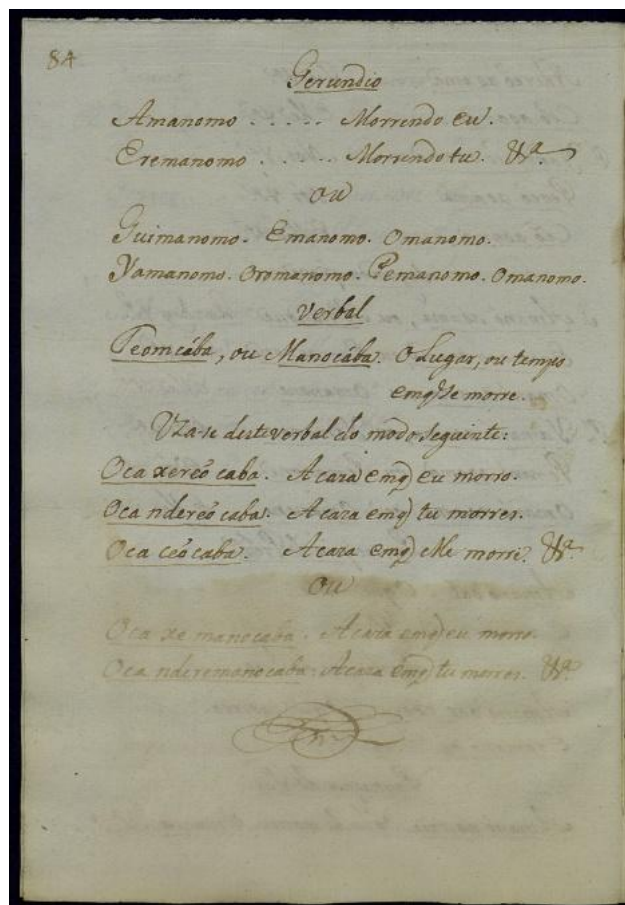 84
Gerundio
Amanomo . . . . . Morrendo eu.
Eremanomo . . . . . Morrendo tu. &ª
ou
Guimanomo. Emanomo. Omanomo.
Yamanomo. Oromanomo. Pemanomo. Omanomo.
Verbal
Teomcába, ou Manocába. O Lugar, ou tempo
emq̃ se morre.
Uza-se deste verbal do modo seguinte:
Oca xereõ caba. A caza emq̃ eu morro.
Oca ndereõ caba. A caza emq̃ tu morres.
Oca ceõ caba. A caza emq̃ elle morre. &ª
ou
Oca xe manocaba. A caza emq̃ eu morro.
Oca nderemanocaba. A caza emq̃ tu morres. &ª